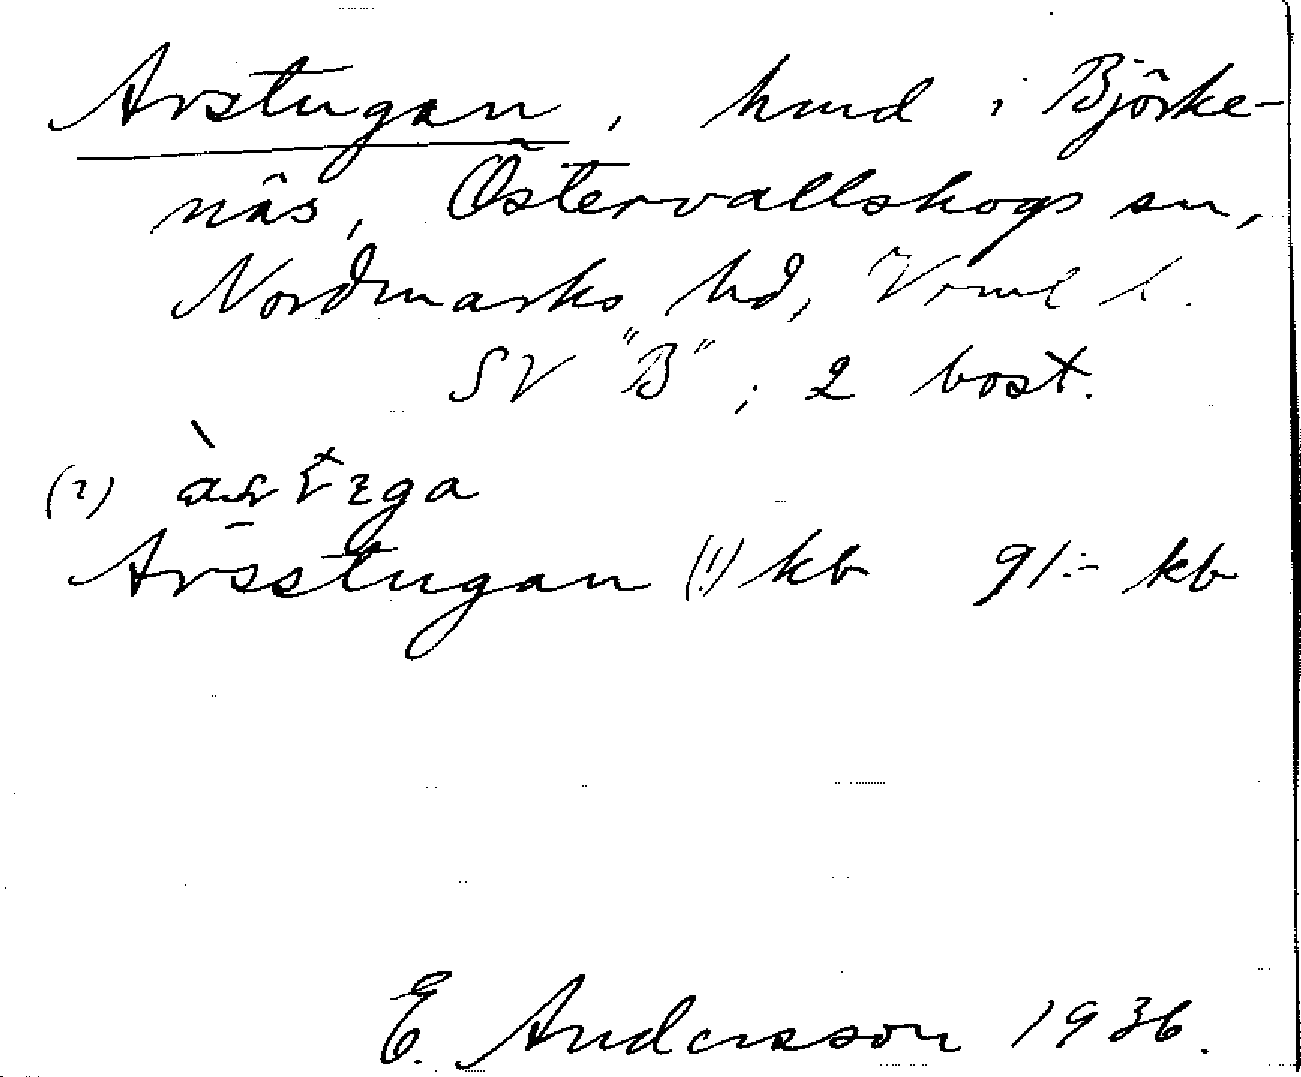 Arstugan, hmd i Björke-
näs, Östervallskogs sn,
Nordmarks hd, Vrml l.
SV "B"; 2 bost.
(2)
Arsstugan (!) kb 91:- kb
E. Andersson 1936.